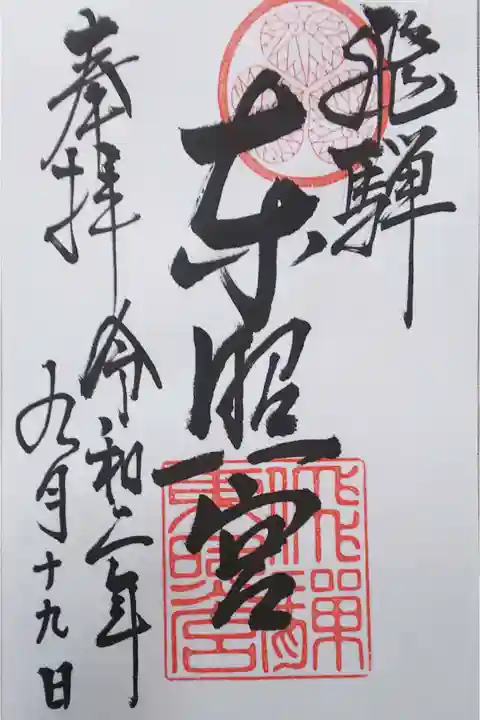 飛騨
東照宮
奉拝
令和二年
九月十九日
飛驒
東照宮